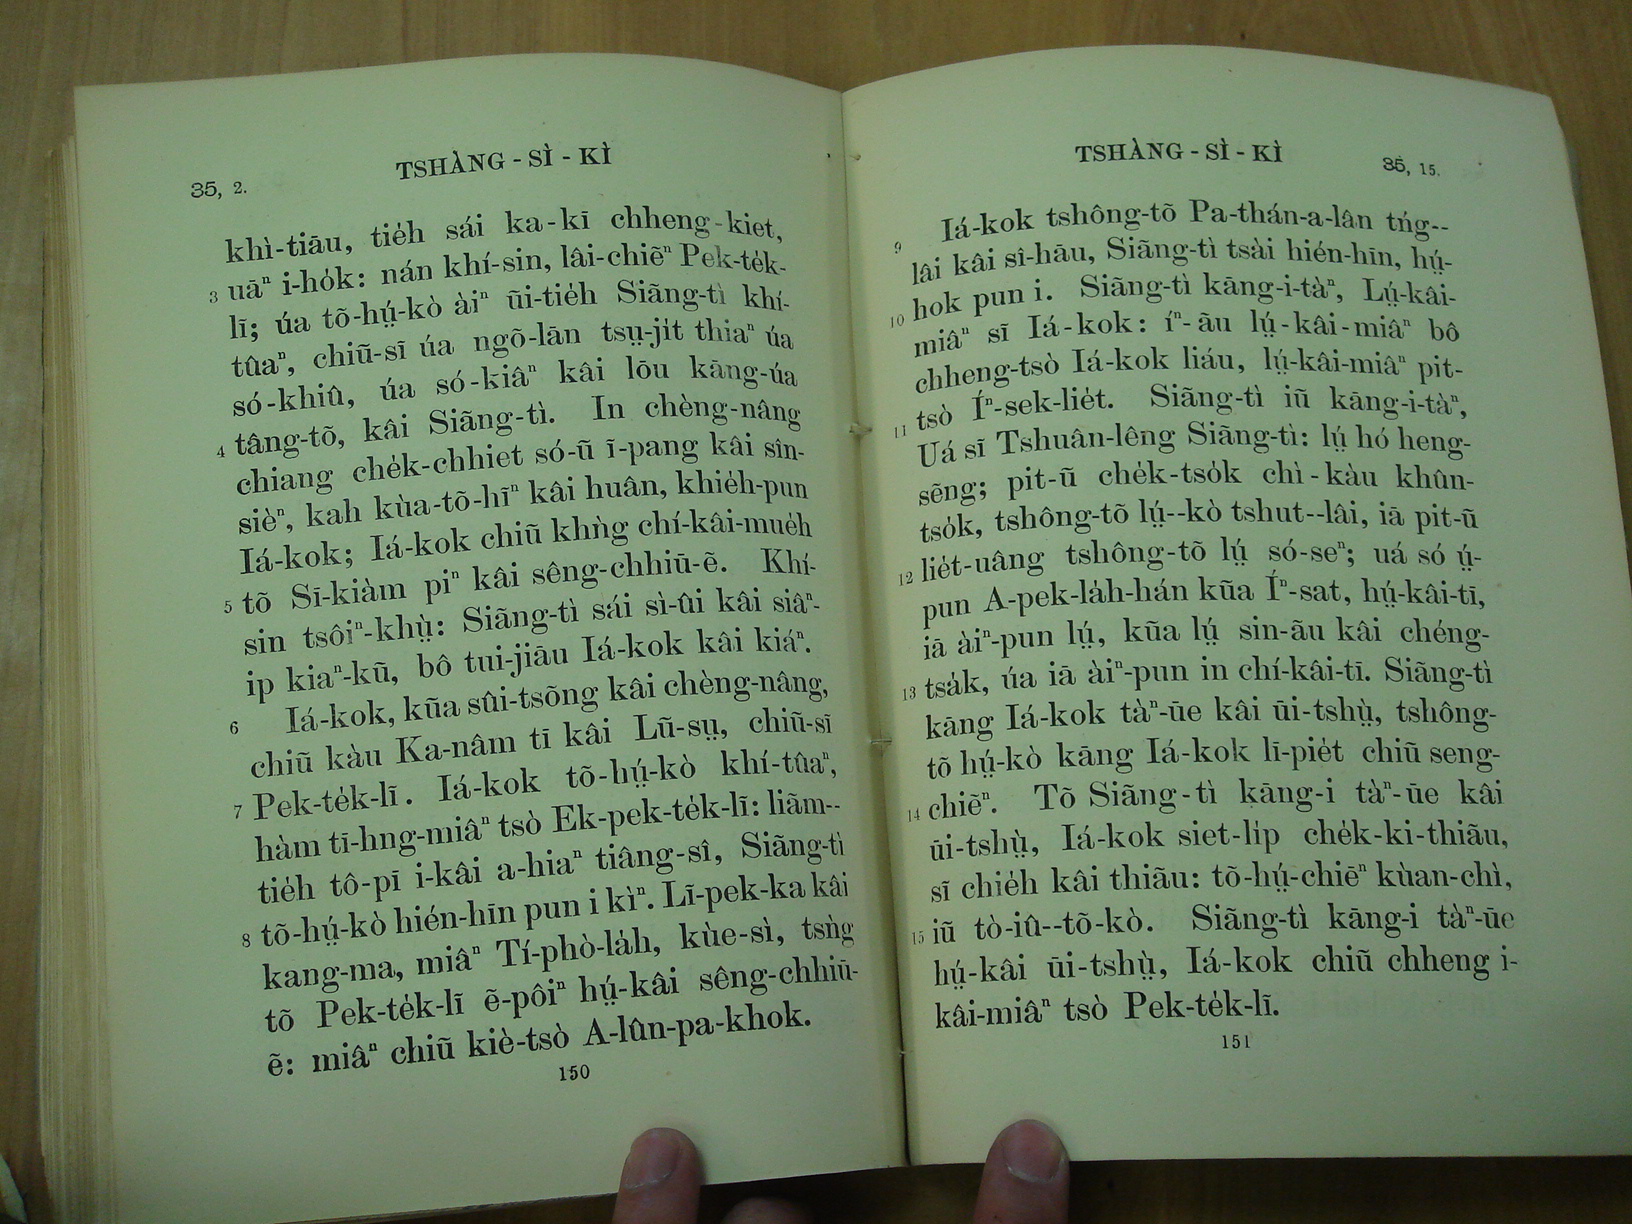 35, 2.
TSHÀNG - SÌ - KÌ
khì-tiāu, tie̍h sái ka-kī chheng-kiet,
3 uāⁿ i-ho̍k: nán khí-sin, lâi-chiẽⁿ Pek-te̍k-
lī; úa tõ-hṳ́-kò àiⁿ ūi-tie̍h Siãng-tì khí-
tûaⁿ, chiũ-sĩ úa ngõ-lān tsṳ-ji̍t thiaⁿ úa
só-khiû, úa só-kiâⁿ kâi lōu kāng-úa
4 tâng-tõ, kâi Siãng-tì. In chèng-nâng
chiang che̍k-chhiet só-ũ ĩ-pang kâi sîn-
sièⁿ, kah kùa-tõ-hĩⁿ kâi huân, khie̍h-pun
Iá-kok; Iá-kok chiũ khǹg chí-kâi-mue̍h
5 tõ Sī-kiàm piⁿ kâi sêng-chhiū-ẽ. Khí-
sin tsôiⁿ-khṳ̀: Siãng-tì sái sì-ûi kâi siâⁿ-
ip kiaⁿ-kũ, bô tui-jiāu Iá-kok kâi kiáⁿ.
6 Iá-kok, kũa sûi-tsõng kâi chèng-nâng,
chiũ kàu Ka-nâm tī kâi Lũ-sṳ, chiũ-sĩ
7 Pek-te̍k-lī. Iá-kok tõ-hṳ́-kò khí-tûaⁿ,
hàm tī-hng-miâⁿ tsò Ek-pek-te̍k-lī: liãm--
tie̍h tô-pī i-kâi a-hiaⁿ tiâng-sî, Siãng-tì
8 tõ-hṳ́-kò hién-hīn pun i kìⁿ. Lī-pek-ka kâi
kang-ma, miâⁿ Tí-phò-la̍h, kùe-sì, tsǹg
tõ Pek-te̍k-lī ẽ-pôiⁿ hṳ́-kâi sêng-chhiū-
ẽ: miâⁿ chiũ kiè-tsò A-lûn-pa-khok.
150
TSHÀNG - SÌ - KÌ
35, 15.
9 Iá-kok tshông-tõ Pa-thán-a-lân tńg--
lâi kâi sî-hāu, Siãng-tì tsài hién-hīn, hṳ́-
10 hok pun i. Siãng-tì kāng-i-tàⁿ, Lṳ́-kâi-
miâⁿ sĩ Iá-kok: íⁿ-ãu lṳ́-kâi-miâⁿ bô
chheng-tsò Iá-kok liáu, lṳ́-kâi-miâⁿ pit-
11 tsò Íⁿ-sek-lie̍t. Siãng-tì iũ kāng-i-tàⁿ,
Uá sĩ Tshuân-lêng Siãng-tì: lṳ́ hó heng-
sẽng; pit-ũ che̍k-tso̍k chì-kàu khûn-
tso̍k, tshông-tõ lṳ́--kò tshut--lâi, iā pit-ũ
12 lie̍t-uâng tshông-tõ lṳ́ só-seⁿ; uá só ṳ́-
pun A-pek-la̍h-hán kũa Íⁿ-sat, hṳ́-kâi-tī,
iā àiⁿ-pun lṳ́, kũa lṳ́ sin-ãu kâi chéng-
13 tsa̍k, úa iā àiⁿ-pun in chí-kâi-tī. Siãng-tì
kāng Iá-kok tàⁿ-ūe kâi ūi-tshṳ̀, tshông-
tõ hṳ́-kò kāng Iá-kok lī-pie̍t chiũ seng-
14 chiẽⁿ. Tõ Siãng-tì kāng-i tàⁿ-ūe kâi
ūi-tshṳ̀, Iá-kok siet-li̍p che̍k-ki-thiãu,
sĩ chie̍h kâi thiãu: tõ-hṳ́-chiẽⁿ kùan-chì,
15 iũ tò-iû--tõ-kò. Siãng-tì kāng-i tàⁿ-ūe
hṳ́-kâi ūi-tshṳ̀, Iá-kok chiũ chheng i-
kâi-miâⁿ tsò Pek-te̍k-lī.
151